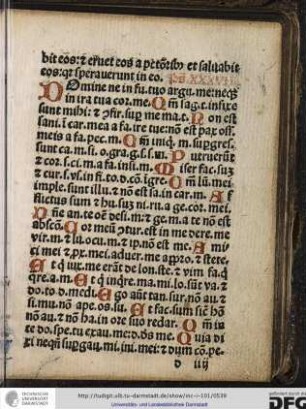 bit eos: ⁊ eruet eos a pctōribꝰ et saluabit
eos: qꝛ sperauerunt in eo. Ps XXXVII
Domine ne in fu. tuo argu. me: neqꝫ
in ira tua cor. me. Qm̄ sag. t. infixe
sunt mihi: ⁊ ꝯfir. suꝑ me ma. t. Non est
sani. i car. mea a fa. ire tue: nō est pax oss.
meis a fa. pec. m. Qm̄ iniq. m. suꝑgres.
sunt ca. m. si. o. gra. g. s. s. m. Putruerūt
⁊ cor. s. ci. m. a fa. insi. m. Miser fac. suꝫ
⁊ cur. s. vs. in fi. to. d. cō. igre. Qm̄ lū. mei
imple. sunt illu. ⁊ nō est sa. in car. m. Af
flictus sum ⁊ hu. suꝫ ni. ru. a ge. cor. mei.
Dn̄e an. te oē desi. m. ⁊ ge. m. a te nō est
abscō. Cor meū ꝯtur. est in me dere. me
vir. m. ⁊ lu. ocu. m. ⁊ ip. nō est me. Ami
ci mei ⁊ ꝓx. mei. aduer. me appro. ⁊ stete.
Et q iux. me erāt de lon. ste. ⁊ vim fa. q
qre. a. m. Et q inqre. ma. mi. lo. sūt va. ⁊
do. to. d. medi. Ego aūt tan. sur. nō au. ⁊
si. mu. nō ape. os. su. Et fac. sum sic hō
nō au. ⁊ nō ha. in ore suo redar. Qm̄ in
te do. spe. tu exau. me: d. ds me. Quia di
xi neqn̄ suꝑgau. mi. ini. mei: ⁊ dum cō. pe.
d iiij
TECHNISCHE
UNIVERSITÄT
DARMSTADT
http://tudigit.ulb.tu-darmstadt.de/show/inc-i-101/0539
Universitäts- und Landesbibliothek Darmstadt
gefördert durch
DFG